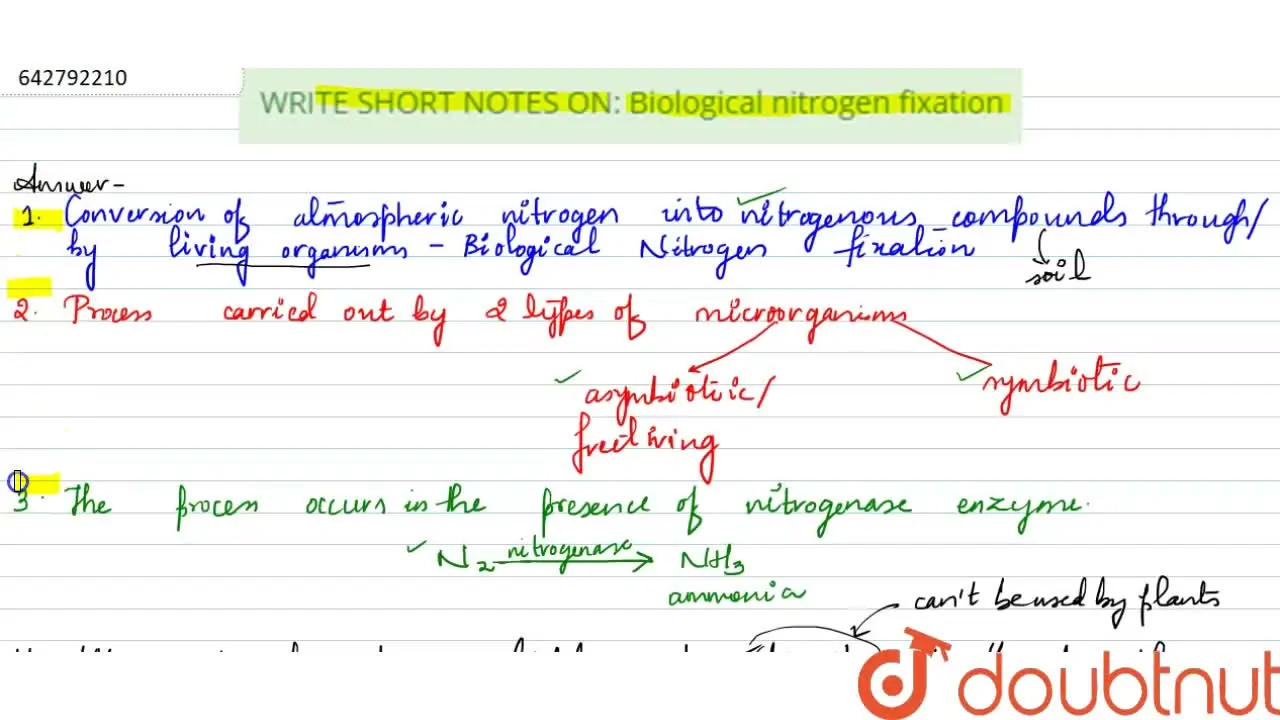 642792210
WRITE SHORT NOTES ON: Biological nitrogen fixation
Answer-
1. Conversion of atmospheric nitrogen into nitrogenous compounds through/
by living organisms - Biological Nitrogen fixation
soil
2. Process carried out by 2 types of microorganisms
asymbiotic/ symbiotic
freeliving
3. The process occurs in the presence of nitrogenase enzyme.
N2 nitrogenase NH3
ammonia
can't be used by plants
doubtnut